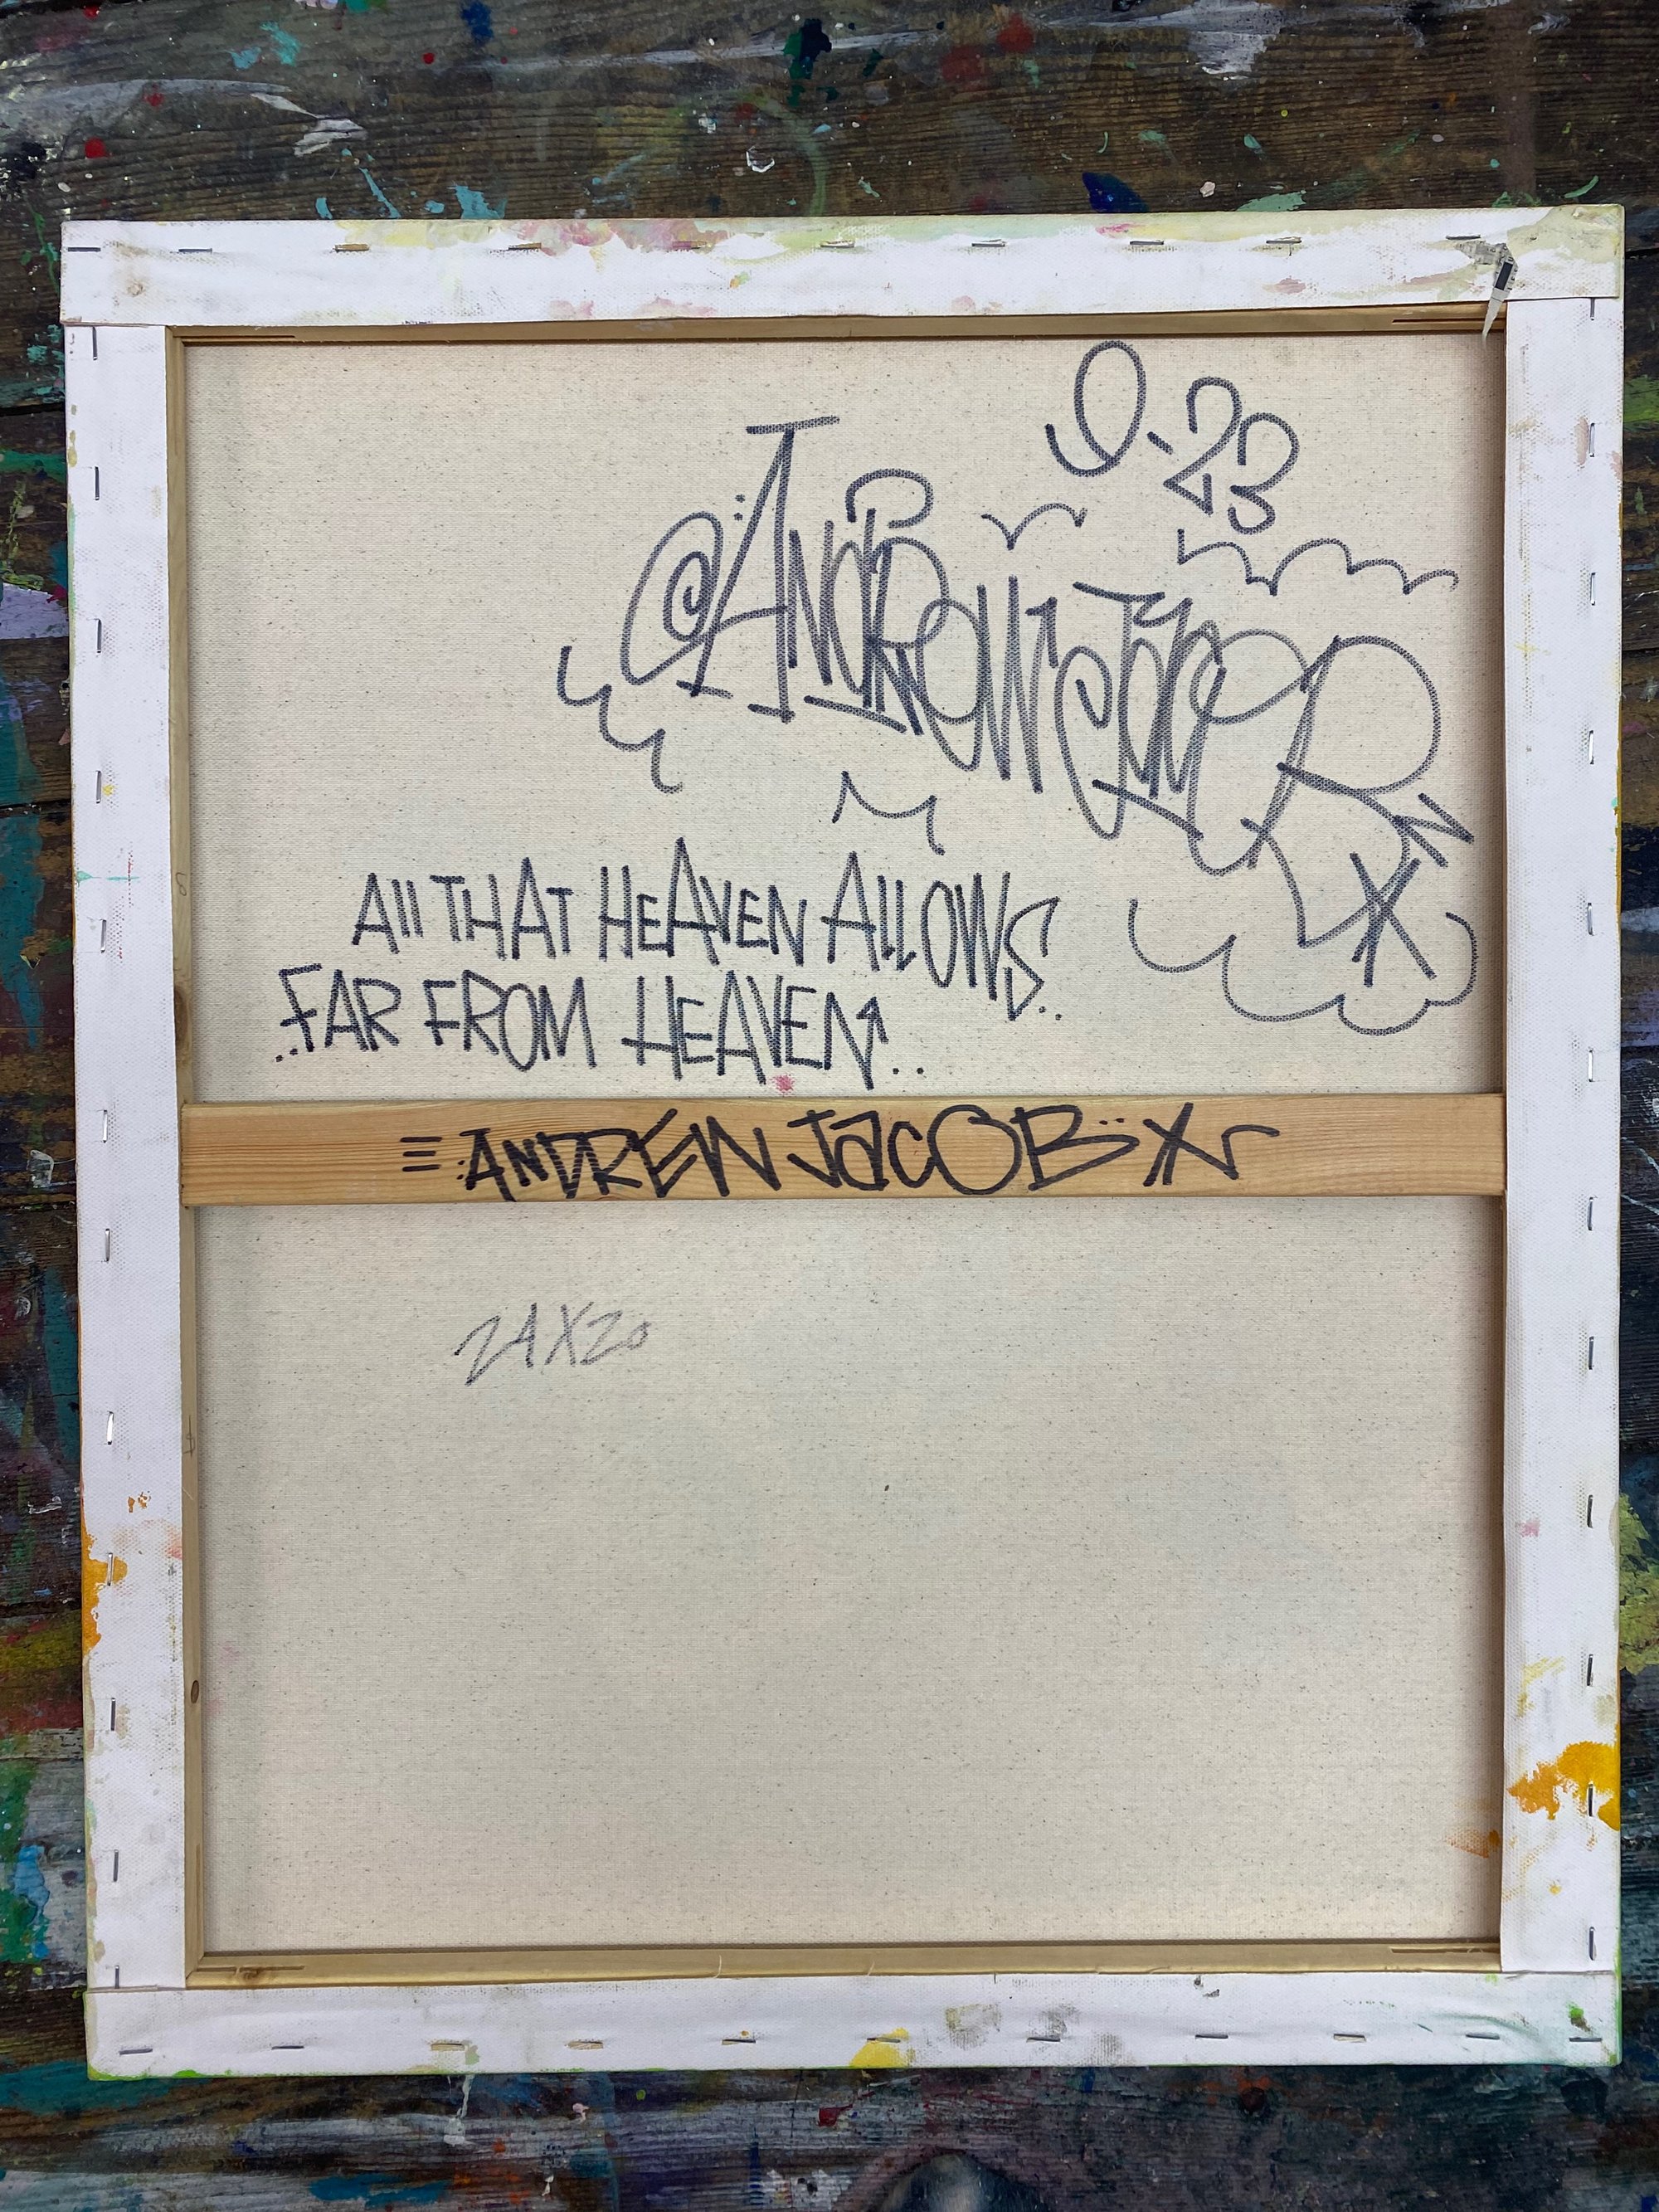 @ANDREWJACOB
All THAT HEAVEN ALLOWS..
..FAR FROM HEAVEN..
ANDREW JacOB X
24X20